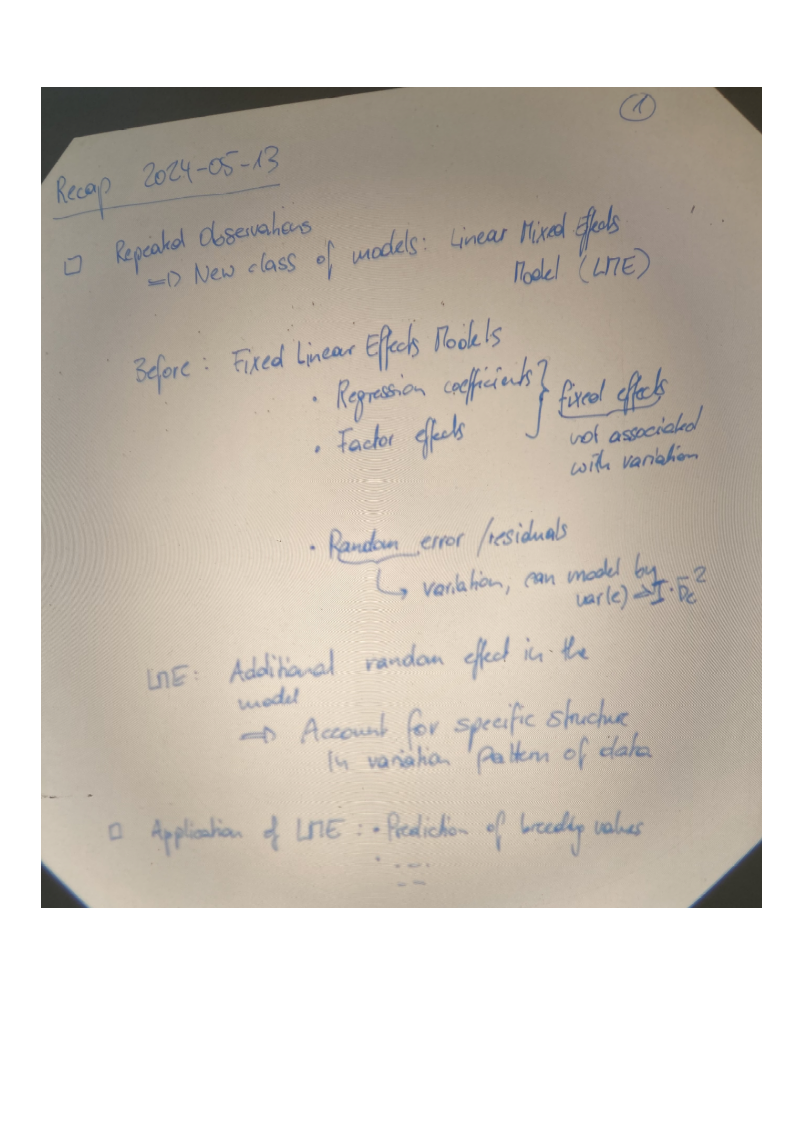 1
Recap 2024-05-13
Repeated Observations
=> New class of models: Linear Mixed Effects
Model (LME)
Before: Fixed Linear Effects Models
• Regression coefficients
• Factor effects
} fixed effects
not associated
with variation
• Random error/residuals
↳ variation, can model by
var(e) → I·σe²
LME: Additional random effect in the
model
=> Account for specific structure
in variation pattern of data
□ Application of LME: • Prediction of breeding values
• ---